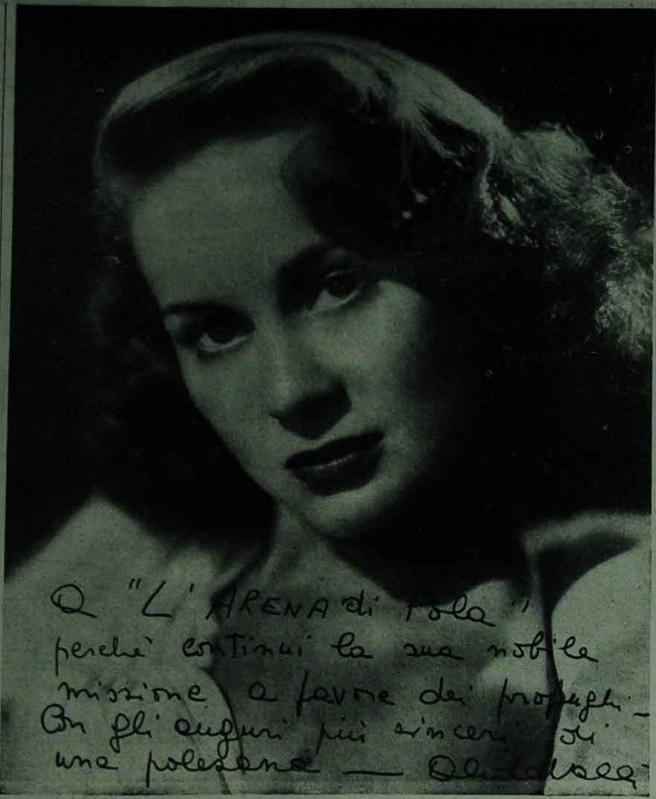 A "L'ARENA di Pola"
perchè continui la sua nobile
missione a favore dei profughi -
Con gli auguri più sinceri di
una polesana — Alida Valli